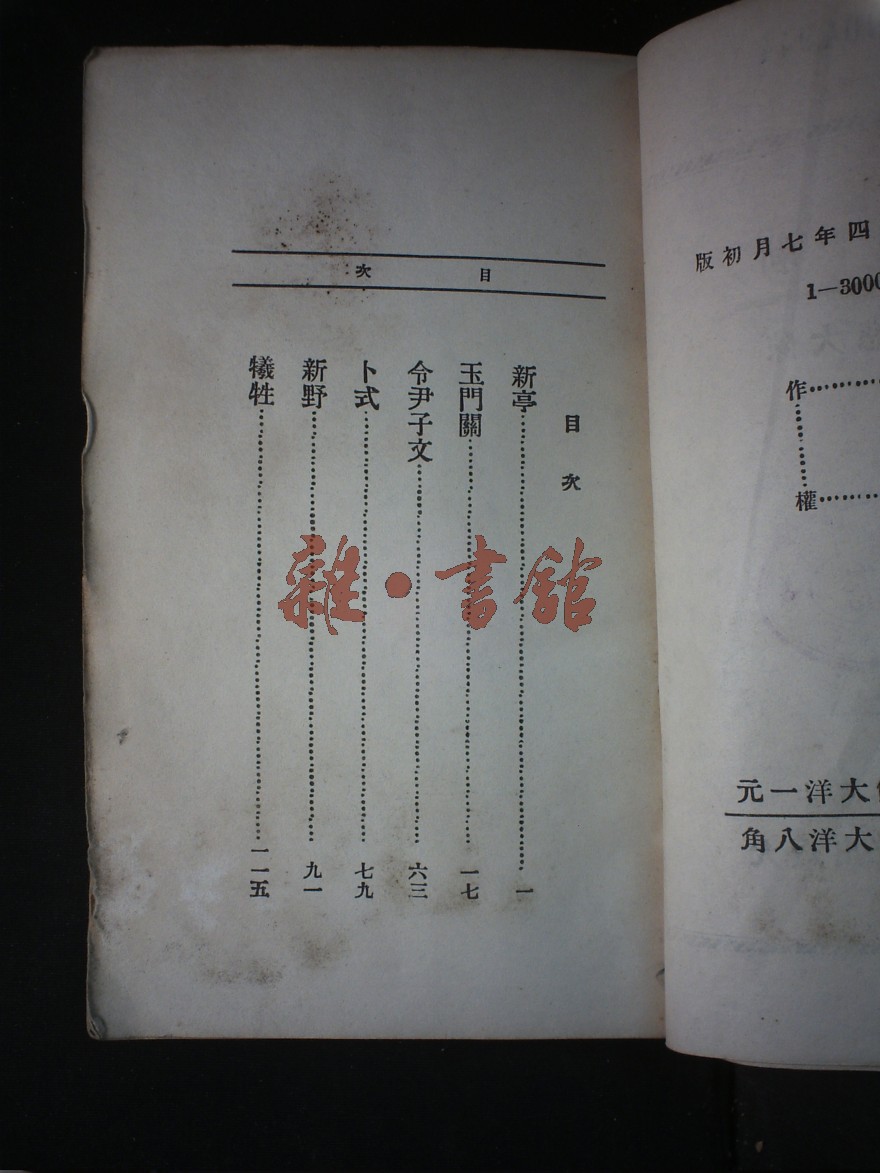 四年七月初版
1—3000
作
權
大洋一元
大洋八角
目次
目次
新亭……一
玉門關……一七
令尹子文……六三
卜式……七九
新野……九一
犧牲……一一五
雜·書館